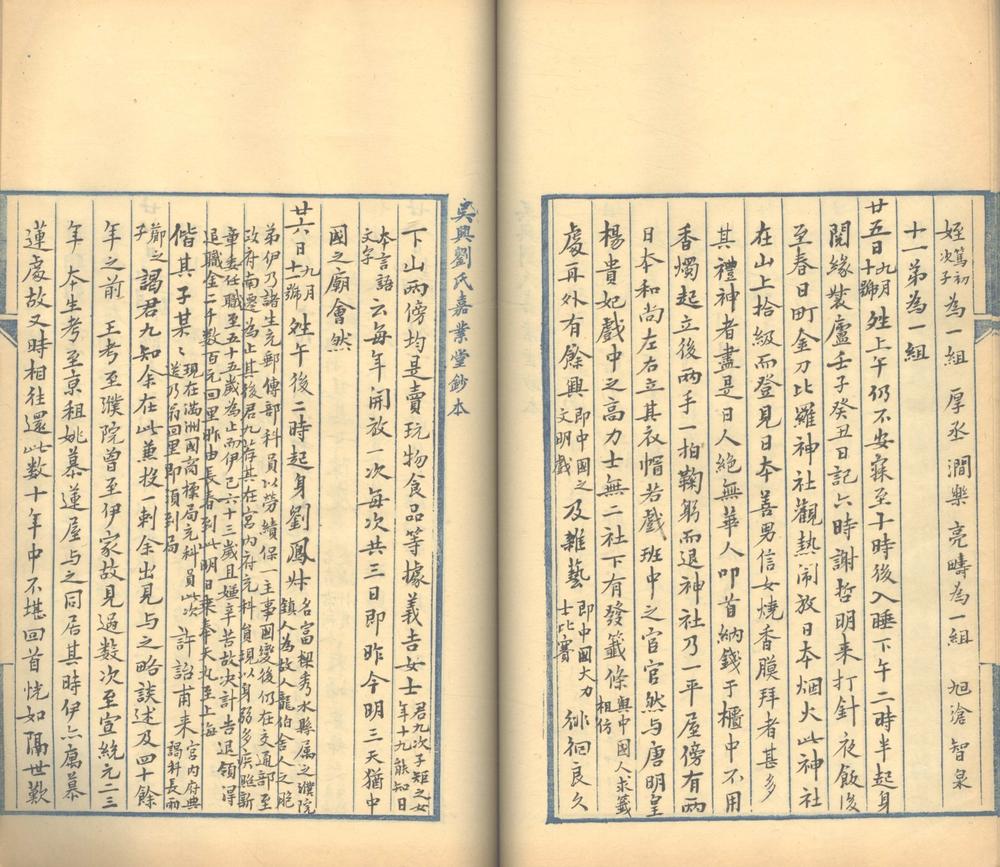 姪篤初次子為一組 厚丞澗樂亮疇為一組 旭滄智泉
十一弟為一組
廿五日九月十號 陞上午仍不安寐至十時後入睡下午二時半起身
閱緣裝廬壬子癸丑日記六時謝哲明來打針夜飯後
至春日町金刀比羅神社觀熱鬧放日本烟火此神社
在山上拾級而登見日本善男信女燒香膜拜者甚多
其禮神者盡是日人絕無華人叩首納錢于櫃中不用
香燭起立後兩手一拍鞠躬而退神社乃一平屋傍有兩
日本和尚左右立其衣帽若戲班中之宦官然与唐明皇
楊貴妃戲中之高力士無二社下有發籤條與中國人求籤相仿
處再外有餘興即中國之文明戲及雜藝即中國大力士比賽徘徊良久
吳興劉氏嘉業堂鈔本
下山兩傍均是賣玩物食品等據義吉女士君九次子矩之女年十九能知日
本言語文字云每年開放一次每次共三日即昨今明三天猶中
國之廟會然
廿六日九月十號 陞午後二時起身劉鳳妹名富樑秀水縣屬之濮院鎮人為故人龍伯舍人之胞
弟伊乃諸生充郵傳部科員以勞績保一主事國變後仍在交通部至
政府南遷為止其後君九薦其在宮内府充科員視以身弱多疾照新
章委任職至五十五歲為止而伊已六十三歲且嫌辛苦故决計告退領得
退職金二千數百元回里昨由長春到此明日乘奉天丸至上海
偕其子某〻現在滿洲國商標局充科員此次送乃翁回里即須到局許詒甫來宮内府典謁科長雨
鄺之子謁君九知余在此兼投一刺余出見与之略談述及四十餘
年之前 王考至濮院曾至伊家故見過數次至宣統元二三
年 本生考至京租姚慕蓮屋与之同居其時伊亦寓慕
蓮處故又時相往還此數十年中不堪回首恍如隔世歎